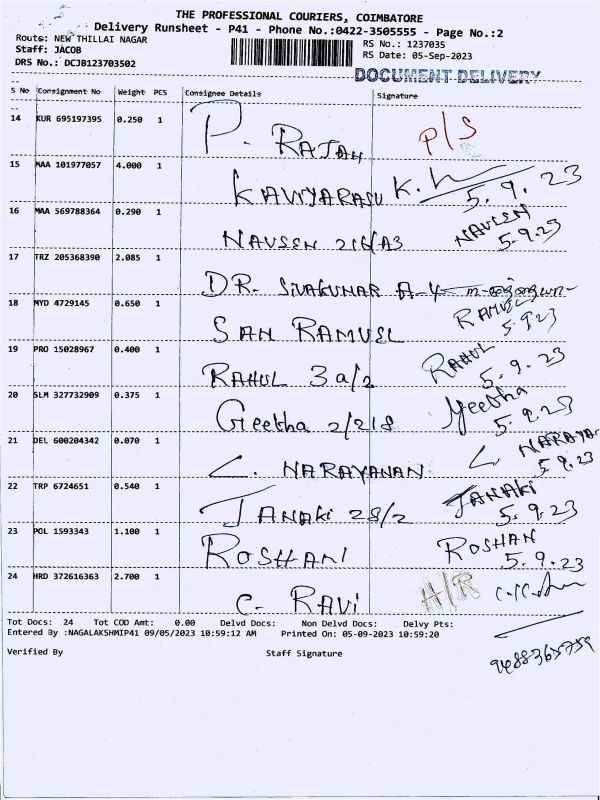 THE PROFESSIONAL COURIERS, COIMBATORE
Delivery Runsheet - P41 - Phone No.:0422-3505555 - Page No.:2
Route: NEW THILLAI NAGAR
RS No.: 1237035
Staff: JACOB
RS Date: 05-Sep-2023
DRS No.: DCJB123703502
DOCUMENT DELIVERY
S No Consignment No Weight PCS Consignee Details Signature
14 KUR 695197395 0.250 1 P. RAJAN P/S
15 MAA 101977057 4.000 1 KAVIYARASU 5.9.23
16 MAA 569788364 0.290 1 NAVEEN NAVEEN 5.9.23
17 TRZ 205368390 2.085 1 DR. SIVAKUMAR A-4
18 MYD 4729145 0.650 1 SAN RAMUEL RAMUEL 5.9.23
19 PRO 15028967 0.400 1 RAHUL 3a/2 RAHUL 5.9.23
20 SLM 327732909 0.375 1 Geetha 2/218 Geetha 5.9.23
21 DEL 600204342 0.070 1 L. NARAYANAN L. NARAYA 5.9.23
22 TRP 6724651 0.540 1 JANAKI 28/2 JANAKI 5.9.23
23 POL 1593343 1.100 1 ROSHANI ROSHAN 5.9.23
24 HRD 372616363 2.700 1 C. RAVI H/R
Tot Docs: 24 Tot COD Amt: 0.00 Delvd Docs: Non Delvd Docs: Delvy Pts:
Entered By :NAGALAKSHMIP41 09/05/2023 10:59:12 AM Printed On: 05-09-2023 10:59:20
Verified By Staff Signature